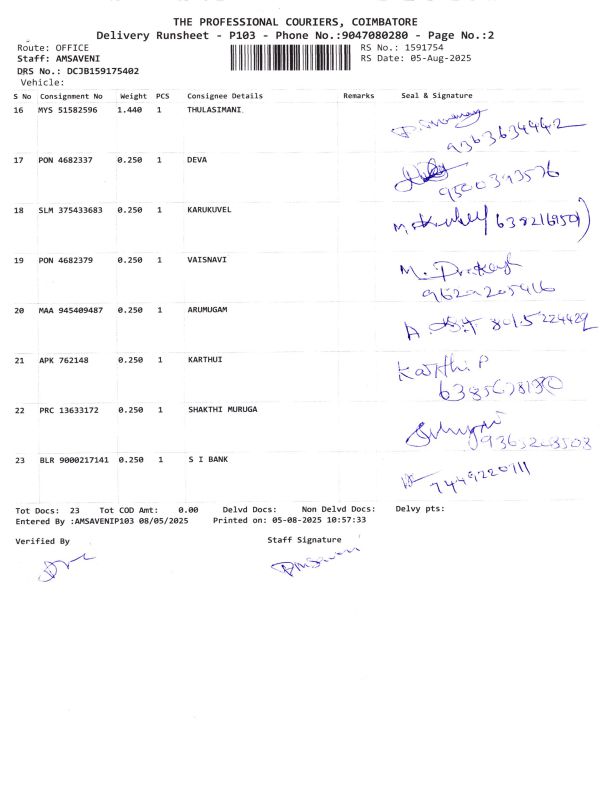 THE PROFESSIONAL COURIERS, COIMBATORE
Delivery Runsheet - P103 - Phone No.:9047080280 - Page No.:2
Route: OFFICE RS No.: 1591754
Staff: AMSAVENI RS Date: 05-Aug-2025
DRS No.: DCJB159175402
Vehicle:
S No Consignment No Weight PCS Consignee Details Remarks Seal & Signature
16 MYS 51582596 1.440 1 THULASIMANI.
9363634442
17 PON 4682337 0.250 1 DEVA
9500393576
18 SLM 375433683 0.250 1 KARUKUVEL
19 PON 4682379 0.250 1 VAISNAVI
M.
9629205416
20 MAA 945409487 0.250 1 ARUMUGAM
8015224429
21 APK 762148 0.250 1 KARTHUI
Karthi P
22 PRC 13633172 0.250 1 SHAKTHI MURUGA
23 BLR 9000217141 0.250 1 S I BANK
7449220711
Tot Docs: 23 Tot COD Amt: 0.00 Delvd Docs: Non Delvd Docs: Delvy pts:
Entered By :AMSAVENIP103 08/05/2025 Printed on: 05-08-2025 10:57:33
Verified By Staff Signature